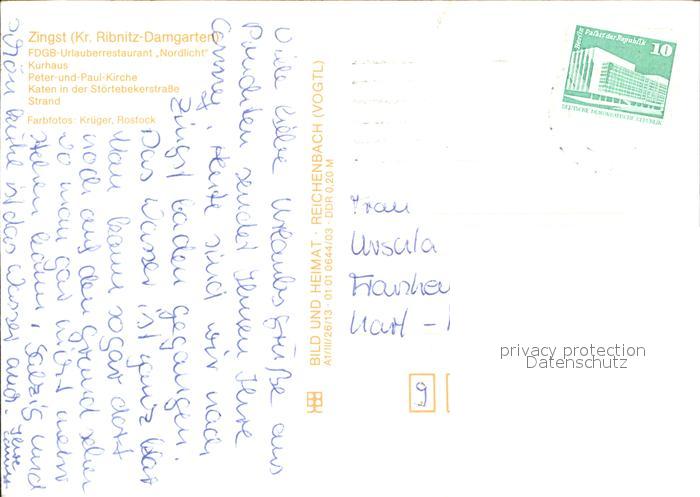 Zingst (Kr. Ribnitz-Damgarten)
FDGB-Urlauberrestaurant „Nordlicht"
Kurhaus
Peter-und-Paul-Kirche
Katen in der Störtebekerstraße
Strand
Farbfotos: Krüger, Rostock
Viele liebe Urlaubsgrüße aus
sendet Ihnen Ihre
Conny. Heute sind wir nach
Zingst baden gegangen.
Das Wasser ist ganz klar
Man kann sogar dort
noch auf den Grund sehn
wo man gar nicht mehr
stehen kann. Salzig und
schön kühl ist das Wasser auch. Ihre
BILD UND HEIMAT · REICHENBACH (VOGTL)
A1/III/26/13 · 01 01 0644/03 · DDR 0,20 M
Berlin Palast der Republik
10
DEUTSCHE DEMOKRATISCHE REPUBLIK
Frau
Ursula
Karl -
9
privacy protection
Datenschutz